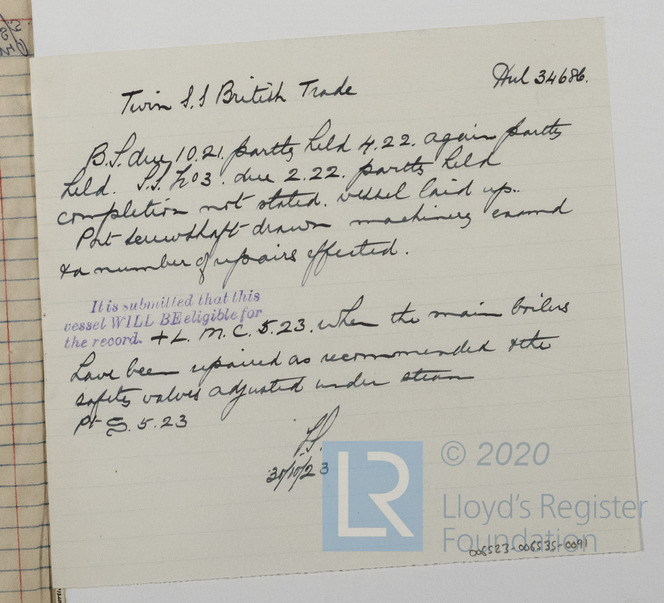 Hul 34686.
Twin S.S British Trade
B.S. due 10.21. partly held 4.22. again partly
held. S.S. No3. due 2.22. partly held
completion not stated. vessel laid up.
Port screwshaft drawn machinery examd
& a number of repairs effected.
It is submitted that this
vessel WILL BE eligible for
the record. + L. M. C. 5.23. when the main boilers
have been repaired as recommended & the
safety valves adjusted under steam
Pt S. 5.23
30/10/23
LR
© 2020
Lloyd's Register
Foundation
006523-006535-0091